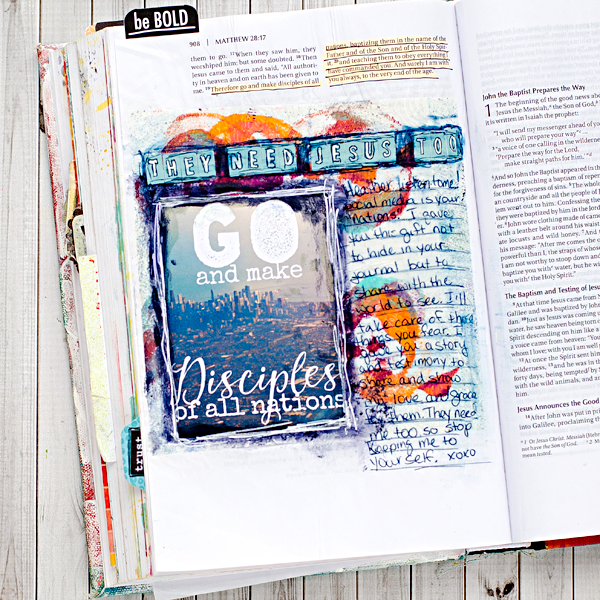 be BOLD
908 | MATTHEW 28:17
them to go. 17When they saw him, they
worshiped him; but some doubted. 18Then
Jesus came to them and said, "All authori-
ty in heaven and on earth has been given to
me. 19Therefore go and make disciples of all
nations, baptizing them in the name of the
Father and of the Son and of the Holy Spir-
it, 20and teaching them to obey everything I
have commanded you. And surely I am with
you always, to the very end of the age."
THEY NEED JESUS TOO
GO
and make
Disciples
of all nations
Heather, listen to me!
social media is your
"Nations". I gave
you this gift not
to hide in your
journal but to
share with the
world to see. I'll
take care of those
things you fear. I
gave you a story
and testimony to
share and show
love and grace
for them. They need
me too, so stop
keeping me to
yourself. xoxo
trust
John the Baptist Prepares the Way
1 The beginning of the good news about
Jesus the Messiah,a the Son of God,b
it is written in Isaiah the prophet:
"I will send my messenger ahead of you
who will prepare your way"—
"a voice of one calling in the wilderness,
'Prepare the way for the Lord,
make straight paths for him.'"
4And so John the Baptist appeared in the
derness, preaching a baptism of repen
for the forgiveness of sins. 5The whole
an countryside and all the people of
lem went out to him. Confessing their
they were baptized by him in the Jord
er. 6John wore clothing made of camel
with a leather belt around his waist
ate locusts and wild honey. 7And
his message: "After me comes the
powerful than I, the straps of whose
I am not worthy to stoop down and
baptize you with water, but he will
you with the Holy Spirit."
The Baptism and Testing of Jesus
9At that time Jesus came from N
Galilee and was baptized by John
dan. 10Just as Jesus was coming
water, he saw heaven being torn
Spirit descending on him like a
a voice came from heaven: "You
whom I love; with you I am well
12At once the Spirit sent him
wilderness, 13and he was in the
forty days, being tempted by S
with the wild animals, and an
him.
Jesus Announces the Good
14After John was put in pri
into Galilee, proclaiming th